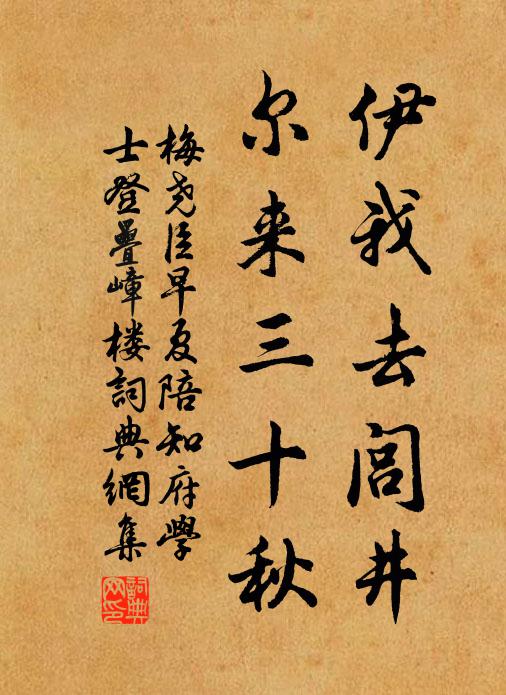 伊我去闾井
尔来三十秋
梅尧臣早夏陪知府学
士登疊嶂楼詞典網集
詞典網印